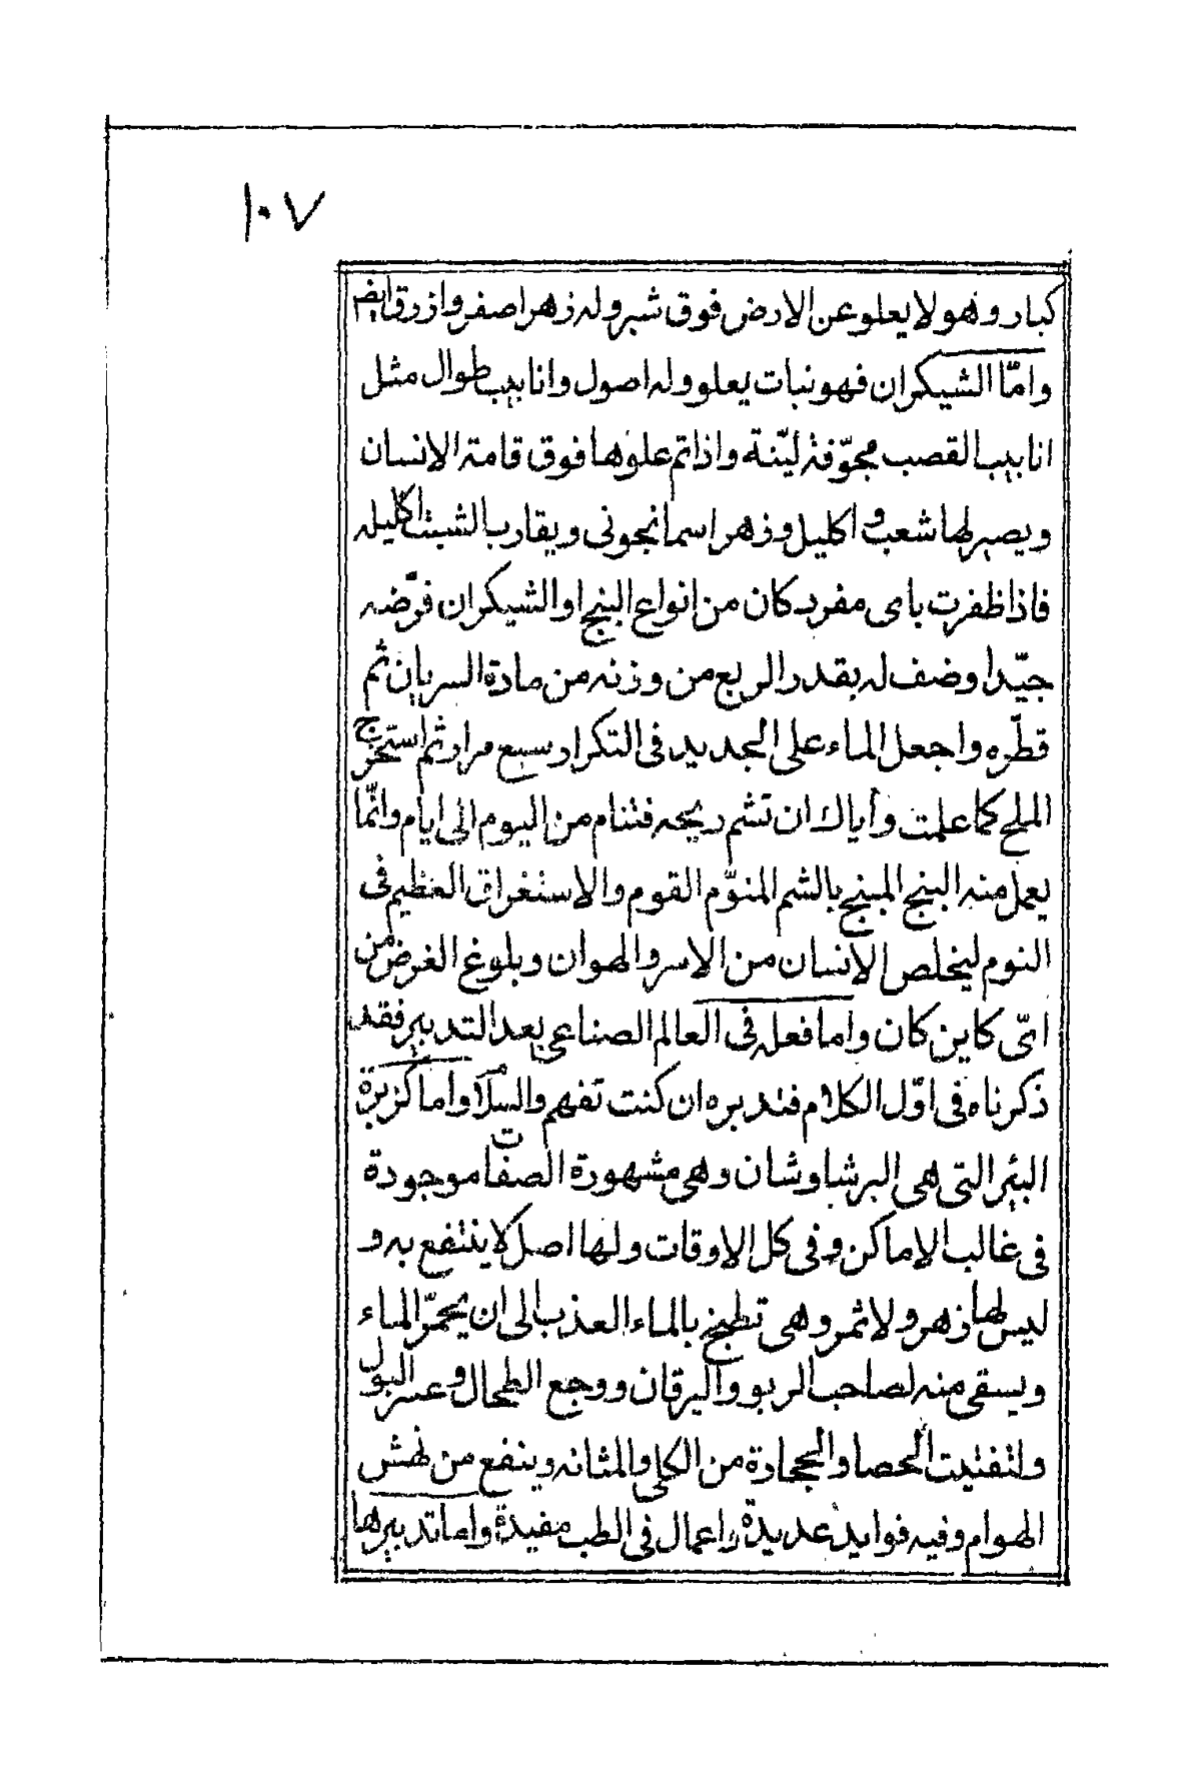 ١٠٧
كبار وهو لا يعلو عن الارض فوق شبر وله زهر اصفر وازرق ايضا
وامّا الشيكران فهو نبات يعلو وله اصول وانابيب طوال مثل
انابيب القصب مجوّفة ليّنة واذا تم علوها فوق قامة الانسان
ويصير لها شعب و اكليل وزهر اسمانجونى ويقارب الشبث اكليله
فاذا ظفرت باى مفرد كان من انواع البنج او الشيكران فرّضه
جيّدا وضف له بقدر الربع من وزنه من مادة السريان ثم
قطّره واجعل الماء على الجديد فى التكرار سبع مرار ثم استخرج
الملح كما علمت وأياك ان تشم ريحه فتنام من اليوم الى ايام وانّما
يعمل منه البنج المبنج بالشم المنوّم القوم والاستغراق العظيم فى
النوم ليخلص الانسان من الاسر والهوان وبلوغ الغرض من
اىّ كاين كان واما فعله فى العالم الصناعى بعد التدبير فقد
ذكرناه فى اوّل الكلام فتدبره ان كنت تفهم والسّلام واما كزبرة
البئر التى هى البرشاوشان وهى مشهورة الصفات موجودة
فى غالب الاماكن وفى كل الاوقات ولها اصل لا ينتفع به و
ليس لها زهر ولا ثمر وهى تطبخ بالماء العذب الى ان يحمرّ الماء
ويسقى منه لصاحب الربو واليرقان ووجع الطحال وعسر البول
ولتفتيت الحصا والحجارة من الكلى والمثانه وينفع من نهش
الهوام وفيه فوايد عديدة واعمال فى الطب مفيدة واما تدبيرها